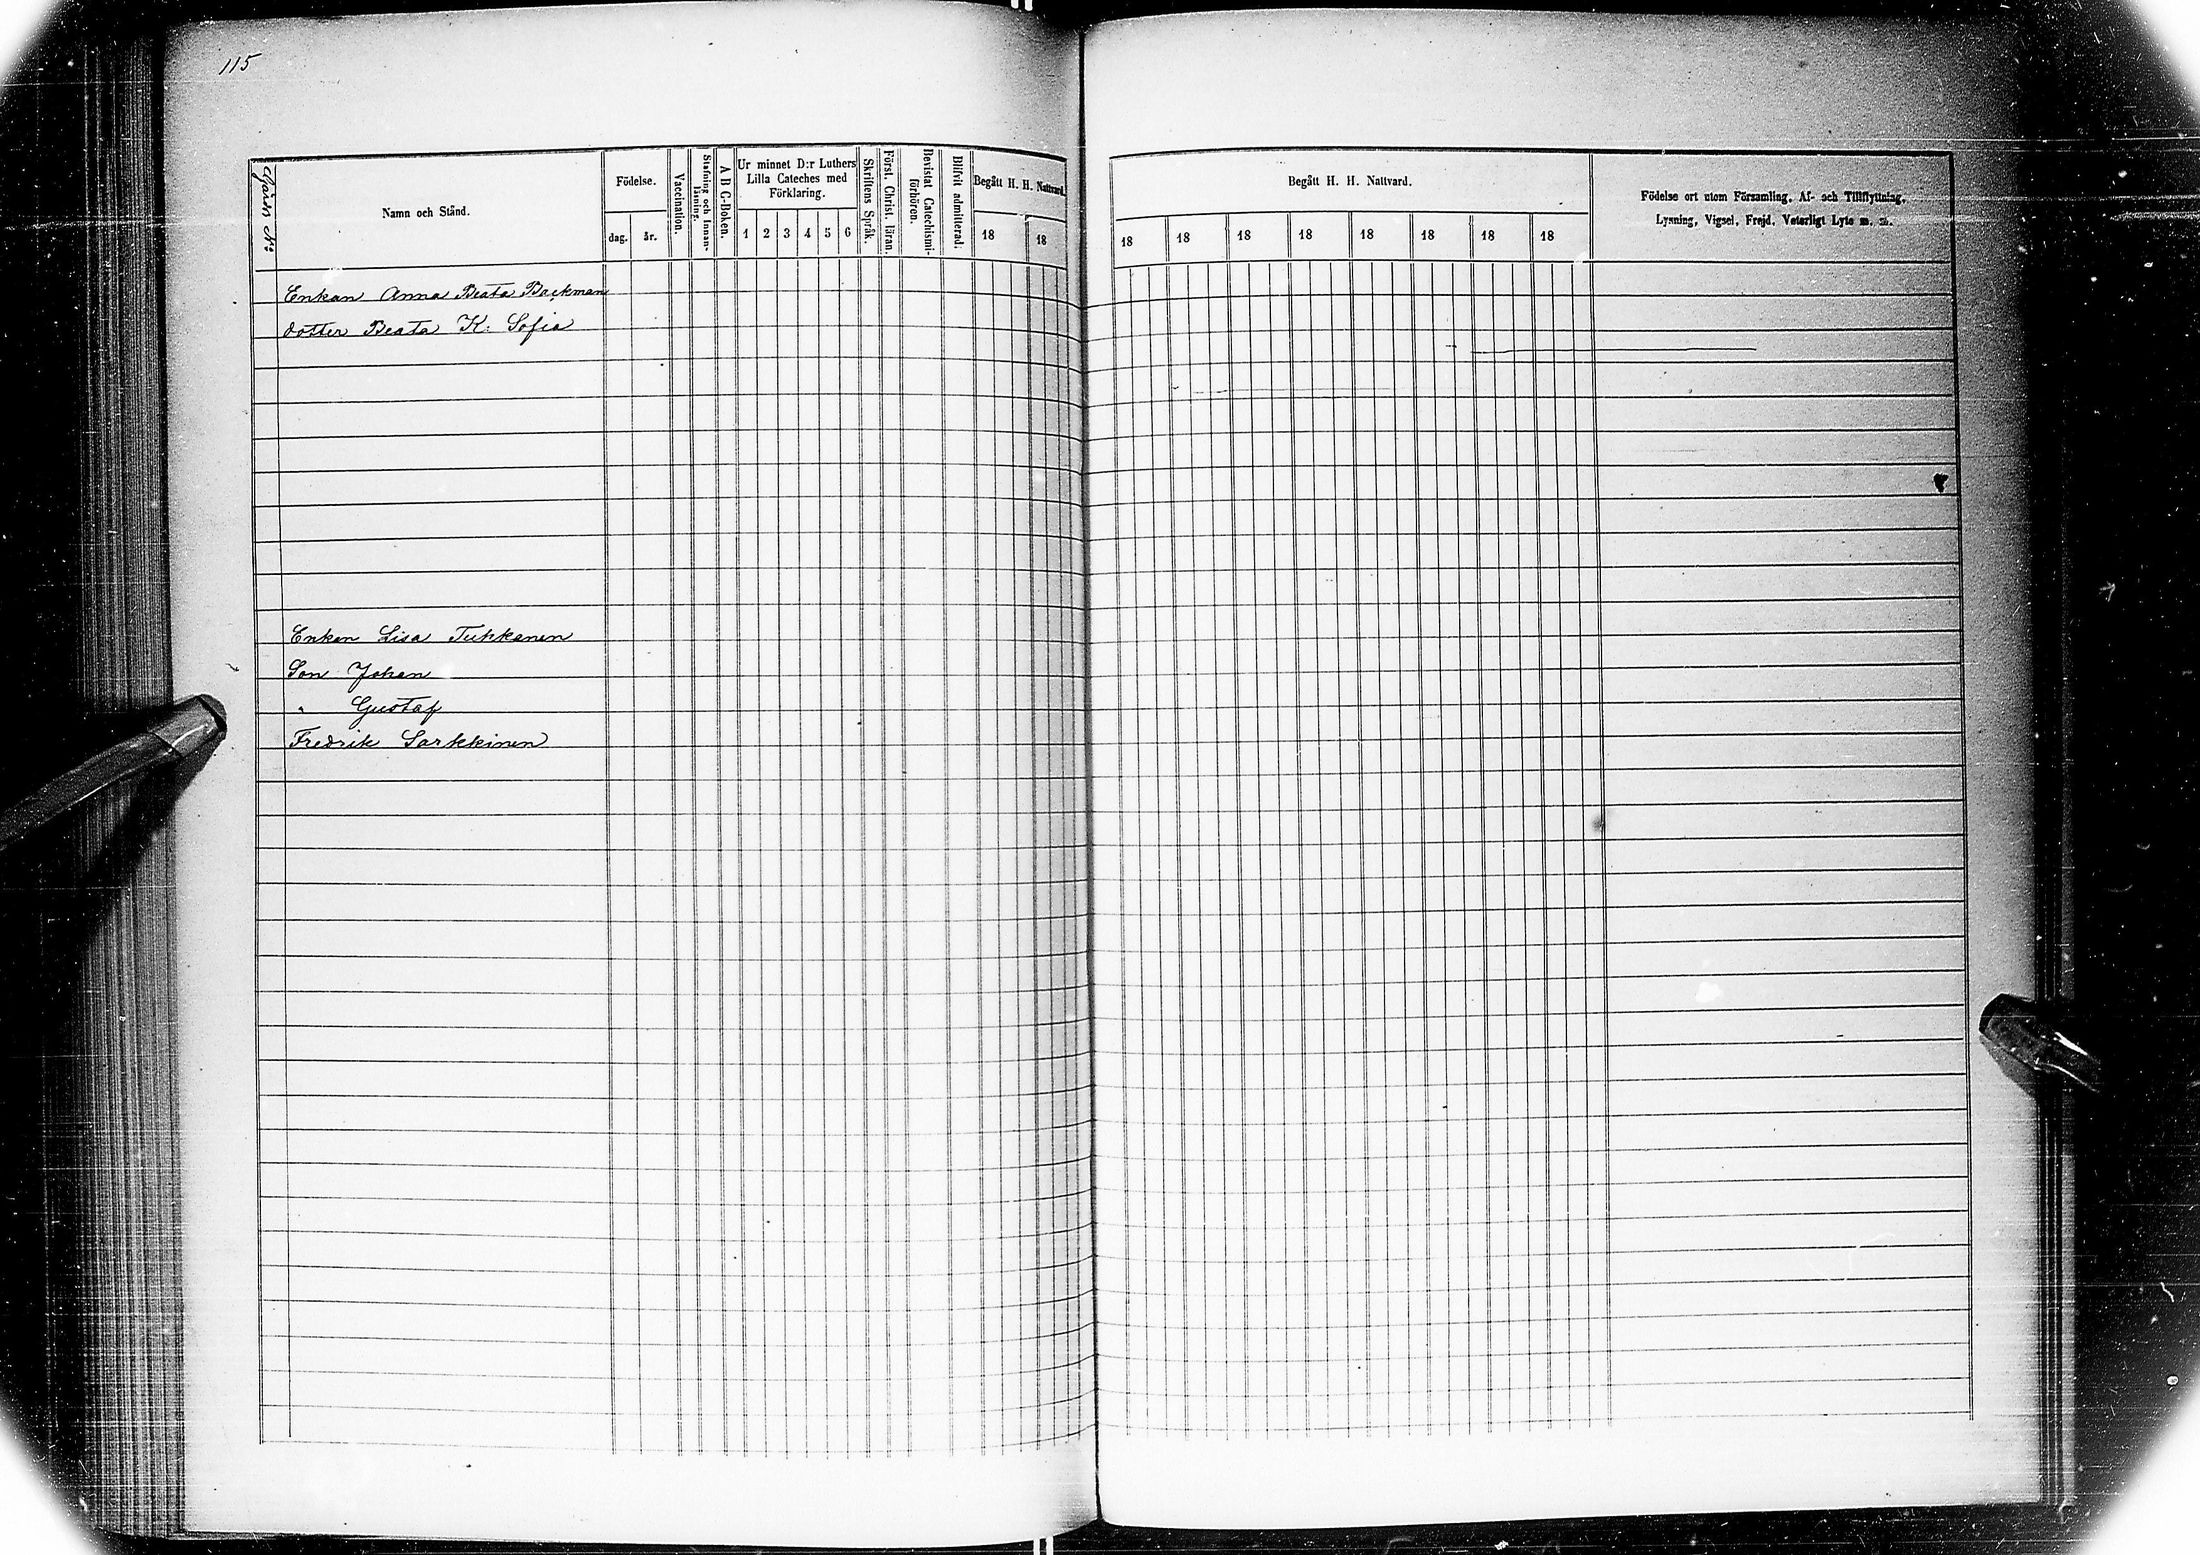 115
Gårds No
Namn och Stånd.
Födelse.
dag.
år.
Vaccination.
Stafning och Innan-
läsning.
A B C-Boken.
Ur minnet D:r Luthers
Lilla Cateches med
Förklaring.
1 2 3 4 5 6
Skriftens Språk.
Först. Christ. läran.
Bevistat Catechismi-
förhören.
Blifvit admitterad.
Begått H. H. Nattvard.
18 18
Begått H. H. Nattvard.
18 18 18 18 18 18 18 18
Födelse ort utom Församling, Af- och Tillflyttning,
Lysning, Vigsel, Frejd, Veterligt Lyte m. m.
Enkan Anna Beata Backman
dotter Beata K: Sofia
Enkan Lisa Tukkanen
Son Johan
" Gustaf
Fredrik Sarkkinen